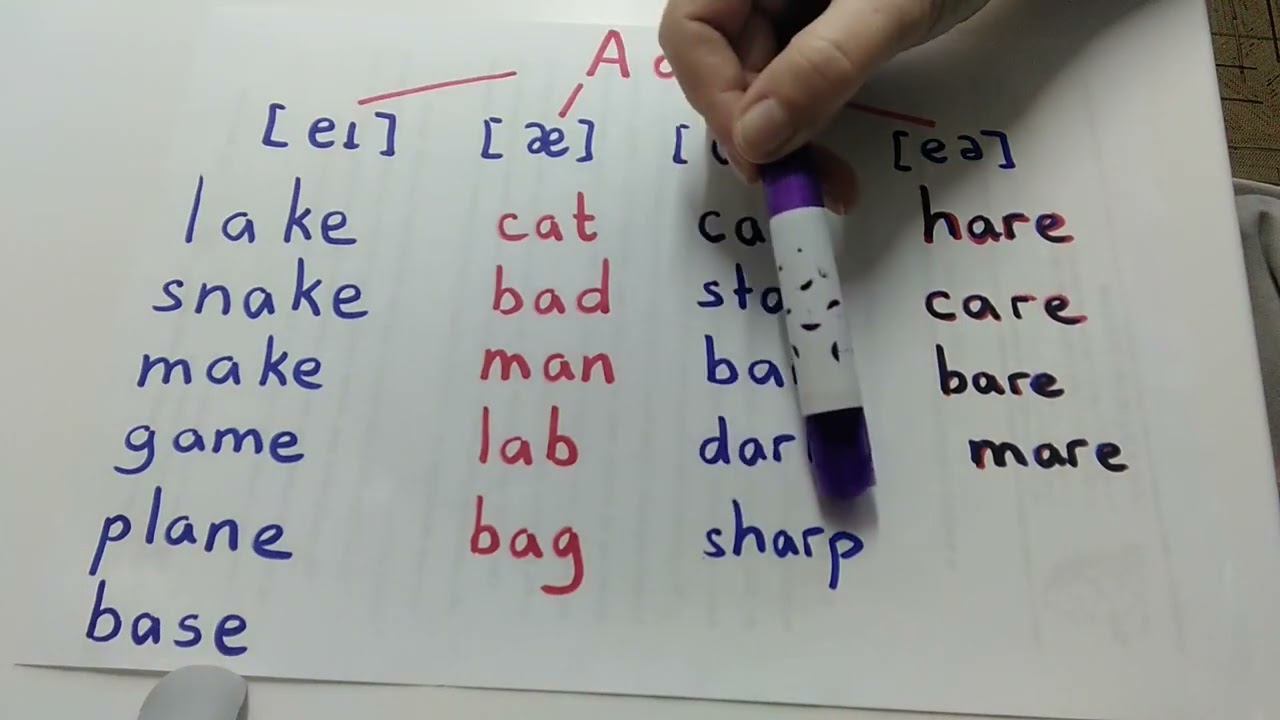 A
[eɪ] [æ] [eə]
lake cat hare
snake bad care
make man bare
game lab mare
plane bag sharp
base